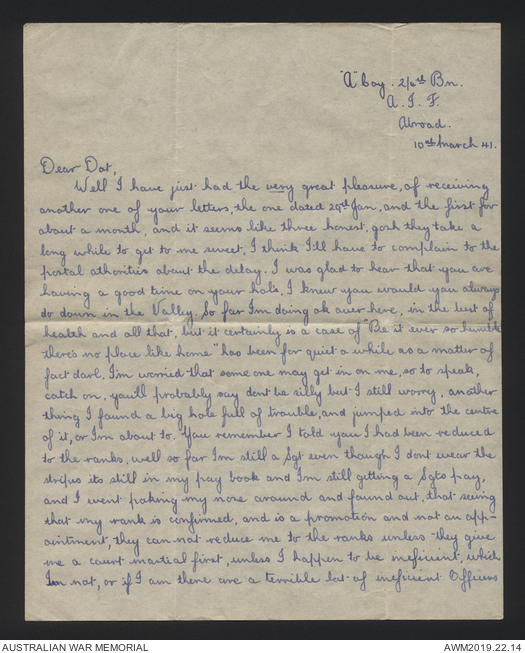 "A" Coy. 2/6th Bn.
A. I. F.
Abroad.
10th March 41.
Dear Dot,
Well I have just had the very great pleasure, of receiving
another one of your letters, the one dated 29th Jan, and the first for
about a month, and it seems like three honest, gosh they take a
long while to get to me sweet, I think I'll have to complain to the
postal athorities about the delay. I was glad to hear that you are
having a good time on your hols, I knew you would you always
do down in the Valley. So far I'm doing ok over here, in the best of
health and all that, but it certainly is a case of "Be it ever so humble
there's no place like home" has been for quiet a while as a matter of
fact darl, I'm worried that some one may get in on me, so to speak,
catch on, you'll probably say dont be silly but I still worry, another
thing I found a big hole full of trouble, and jumped into the centre
of it, or I'm about to. You remember I told you I had been reduced
to the ranks, well so far I'm still a Sgt even though I dont wear the
stripes its still in my pay book and I'm still getting a Sgts pay,
and I went poking my nose around and found out, that seeing
that my rank is confirmed, and is a promotion and not an app-
ointment, they can not reduce me to the ranks unless they give
me a court martial first, unless I happen to be ineficient, which
I'm not, or if I am there are a terrible lot of ineficient Officers
AUSTRALIAN WAR MEMORIAL
AWM2019.22.14